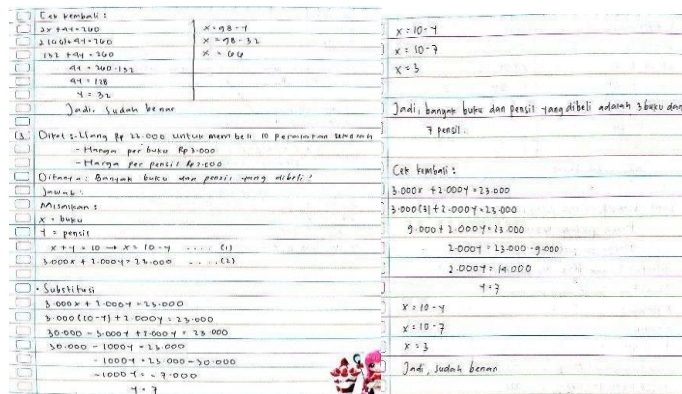 Cek kembali :
2x + 4y = 260
2(66) + 4y = 260
132 + 4y = 260
4y = 260 - 132
4y = 128
y = 32
x = 98 - y
x = 98 - 32
x = 66
Jadi, sudah benar
13. Diket : - Uang Rp 23.000 untuk membeli 10 peralatan sekolah
- Harga per buku Rp 3.000
- Harga per pensil Rp 2.000
Ditanya : Banyak buku dan pensil yang dibeli ?
Jawab :
Misalkan :
x = buku
y = pensil
x + y = 10 → x = 10 - y .... (1)
3.000x + 2.000y = 23.000 .... (2)
• Substitusi
3.000x + 2.000y = 23.000
3.000(10-y) + 2.000y = 23.000
30.000 - 3.000y + 2.000y = 23.000
30.000 - 1000y = 23.000
- 1000y = 23.000 - 30.000
- 1000y = - 7.000
y = 7
x = 10 - y
x = 10 - 7
x = 3
Jadi, banyak buku dan pensil yang dibeli adalah 3 buku dan
7 pensil.
Cek kembali :
3.000x + 2.000y = 23.000
3.000(3) + 2.000y = 23.000
9.000 + 2.000y = 23.000
2.000y = 23.000 - 9.000
2.000y = 14.000
y = 7
x = 10 - y
x = 10 - 7
x = 3
Jadi, sudah benar